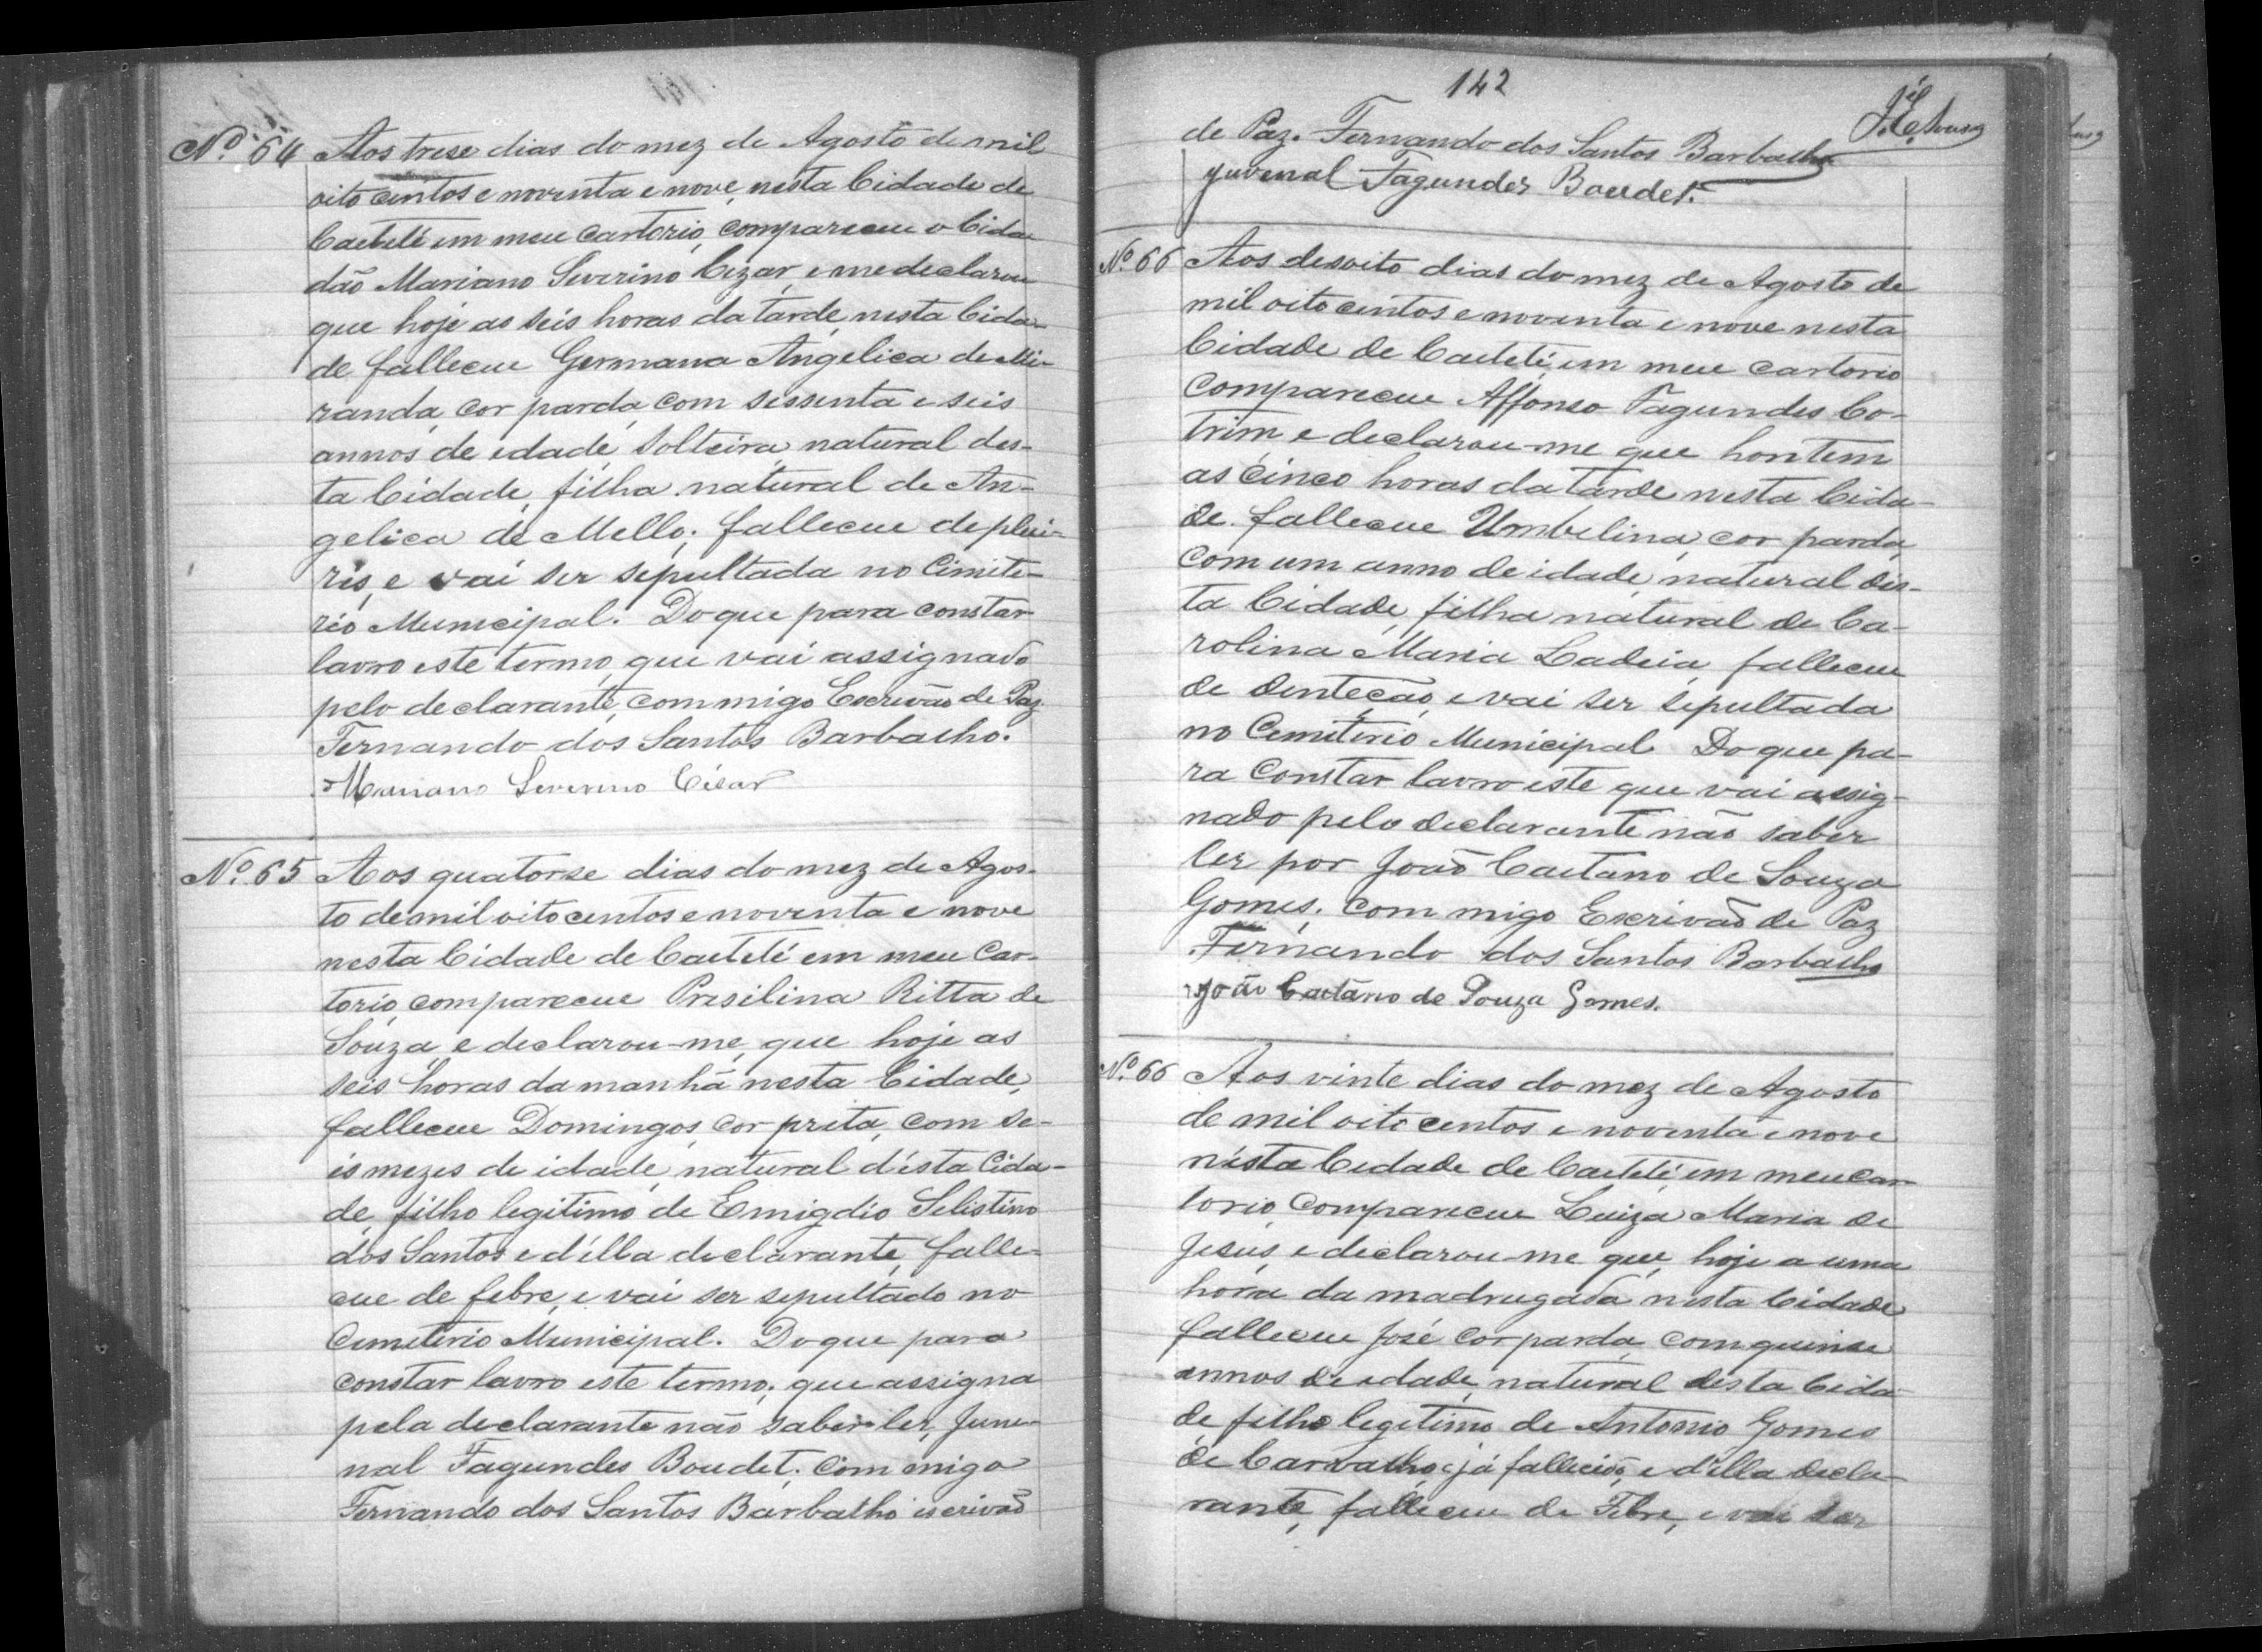 Nº 64 Aos trese dias do mez de Agosto de mil
oito centos e noventa e nove, nesta Cidade de
Caeteté em meu Cartorio, compareceu o Cida-
dão Mariano Severino Cezar, e me declarou
que hoje as seis horas da tarde, nesta Cida-
de falleceu Germana Angelica de Mi-
randa, cor parda, com sessenta e seis
annos de edade, solteira, natural des-
ta Cidade, filha natural de An-
gelica de Mello; falleceu de pleu-
ris, e vai ser sepultada no Cimite-
rio Municipal. Do que para constar
lavro este termo, que vai assignado
pelo declarante, com migo Escrivão de Paz
Fernando dos Santos Barbalho.
Mariano Severino Cesar
Nº 65 Aos quatorse dias do mez de Agos-
to de mil oito centos e noventa e nove
nesta Cidade de Caeteté em meu Car-
torio, compareceu Presilina Ritta de
Souza, e declarou-me, que hoje as
seis horas da manhã nesta Cidade,
falleceu Domingos, cor preta, com se-
is mezes de idade, natural d'ésta Cida-
de, filho legitimo de Emigdio Selistino
dos Santos e d'élla declarante, falle-
ceu de febre, e vai ser sepultado no
Cemiterio Municipal. Do que para
constar lavro este termo, que assigna
pela declarante não saber ler, Juve-
nal Fagundes Boudet. Com migo
Fernando dos Santos Barbalho escrivão
142
de Paz. Fernando dos Santos Barbalho
Juvenal Fagundes Boudet.
Nº 66 Aos desoito dias do mez de Agosto de
mil oito centos e noventa e nove nesta
Cidade de Caeteté, em meu cartorio
Compareceu Affonso Fagundes Co-
trim e declarou-me que hontem
as cinco horas da tarde nesta Cida-
de. falleceu Umbelina, cor parda,
com um anno de idade, natural des-
ta Cidade, filha natural de Ca-
rolina Maria Ladeia, falleceu
de denteção, e vai ser sepultada
no Cemiterio Municipal. Do que pa-
ra Constar lavro este que vai assig-
nado pelo declarante não saber
ler por João Caetano de Souza
Gomes. com migo Escrivão de Paz
Fernando dos Santos Barbalho
João Caetano de Souza Gomes.
Nº 66 Aos vinte dias do mez de Agosto
de mil oito centos e noventa e nove
nésta Cidade de Caeteté, em meu Car-
torio Compareceu Luiza Maria de
Jesus, e declarou-me que, hoje a uma
hora da madrugada nesta Cidade
falleceu José cor parda, com quinse
annos de edade, natural desta Cida-
de filho legitimo de Antonio Gomes
de Carvalho, já fallecido, e d'ella decla-
rante, falleceu de Febre, e vai ser